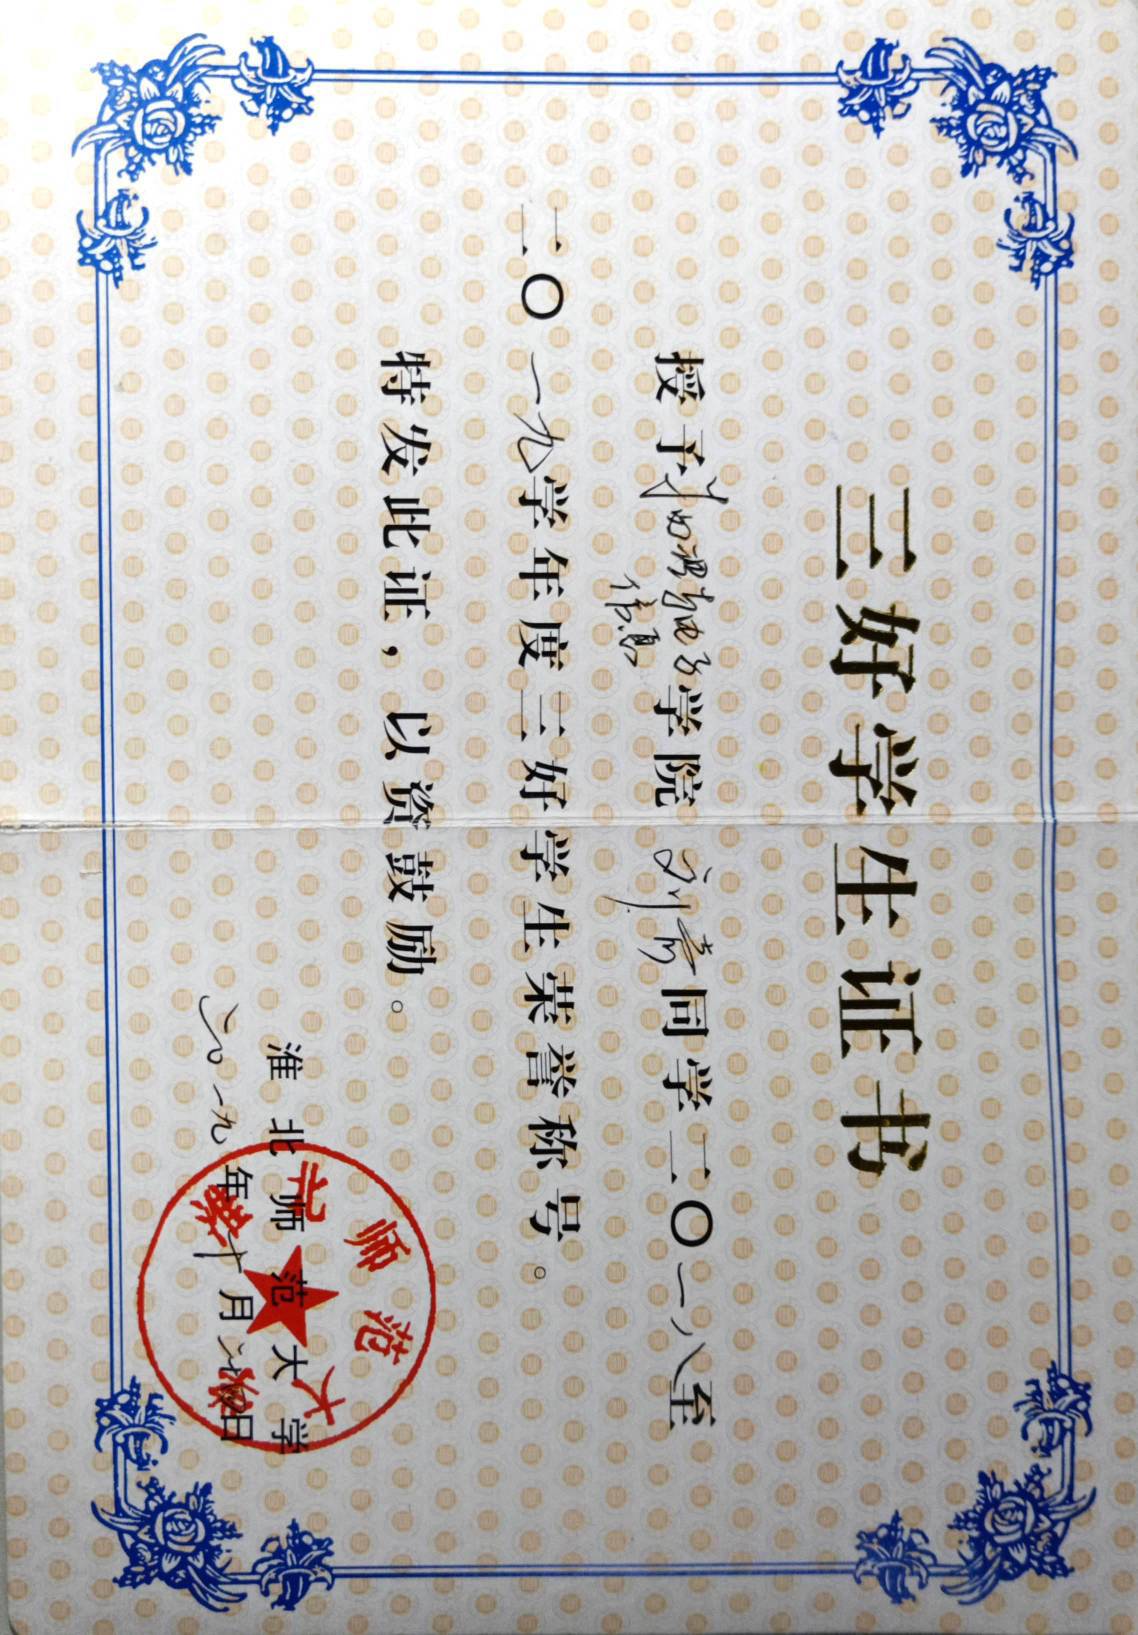 三好学生证书
授予物理与电子信息学院 刘 同学二〇一八至
二〇一九学年度三好学生荣誉称号。
特发此证，以资鼓励。
淮北师范大学
二〇一九年十月二十四日
淮北师范大学